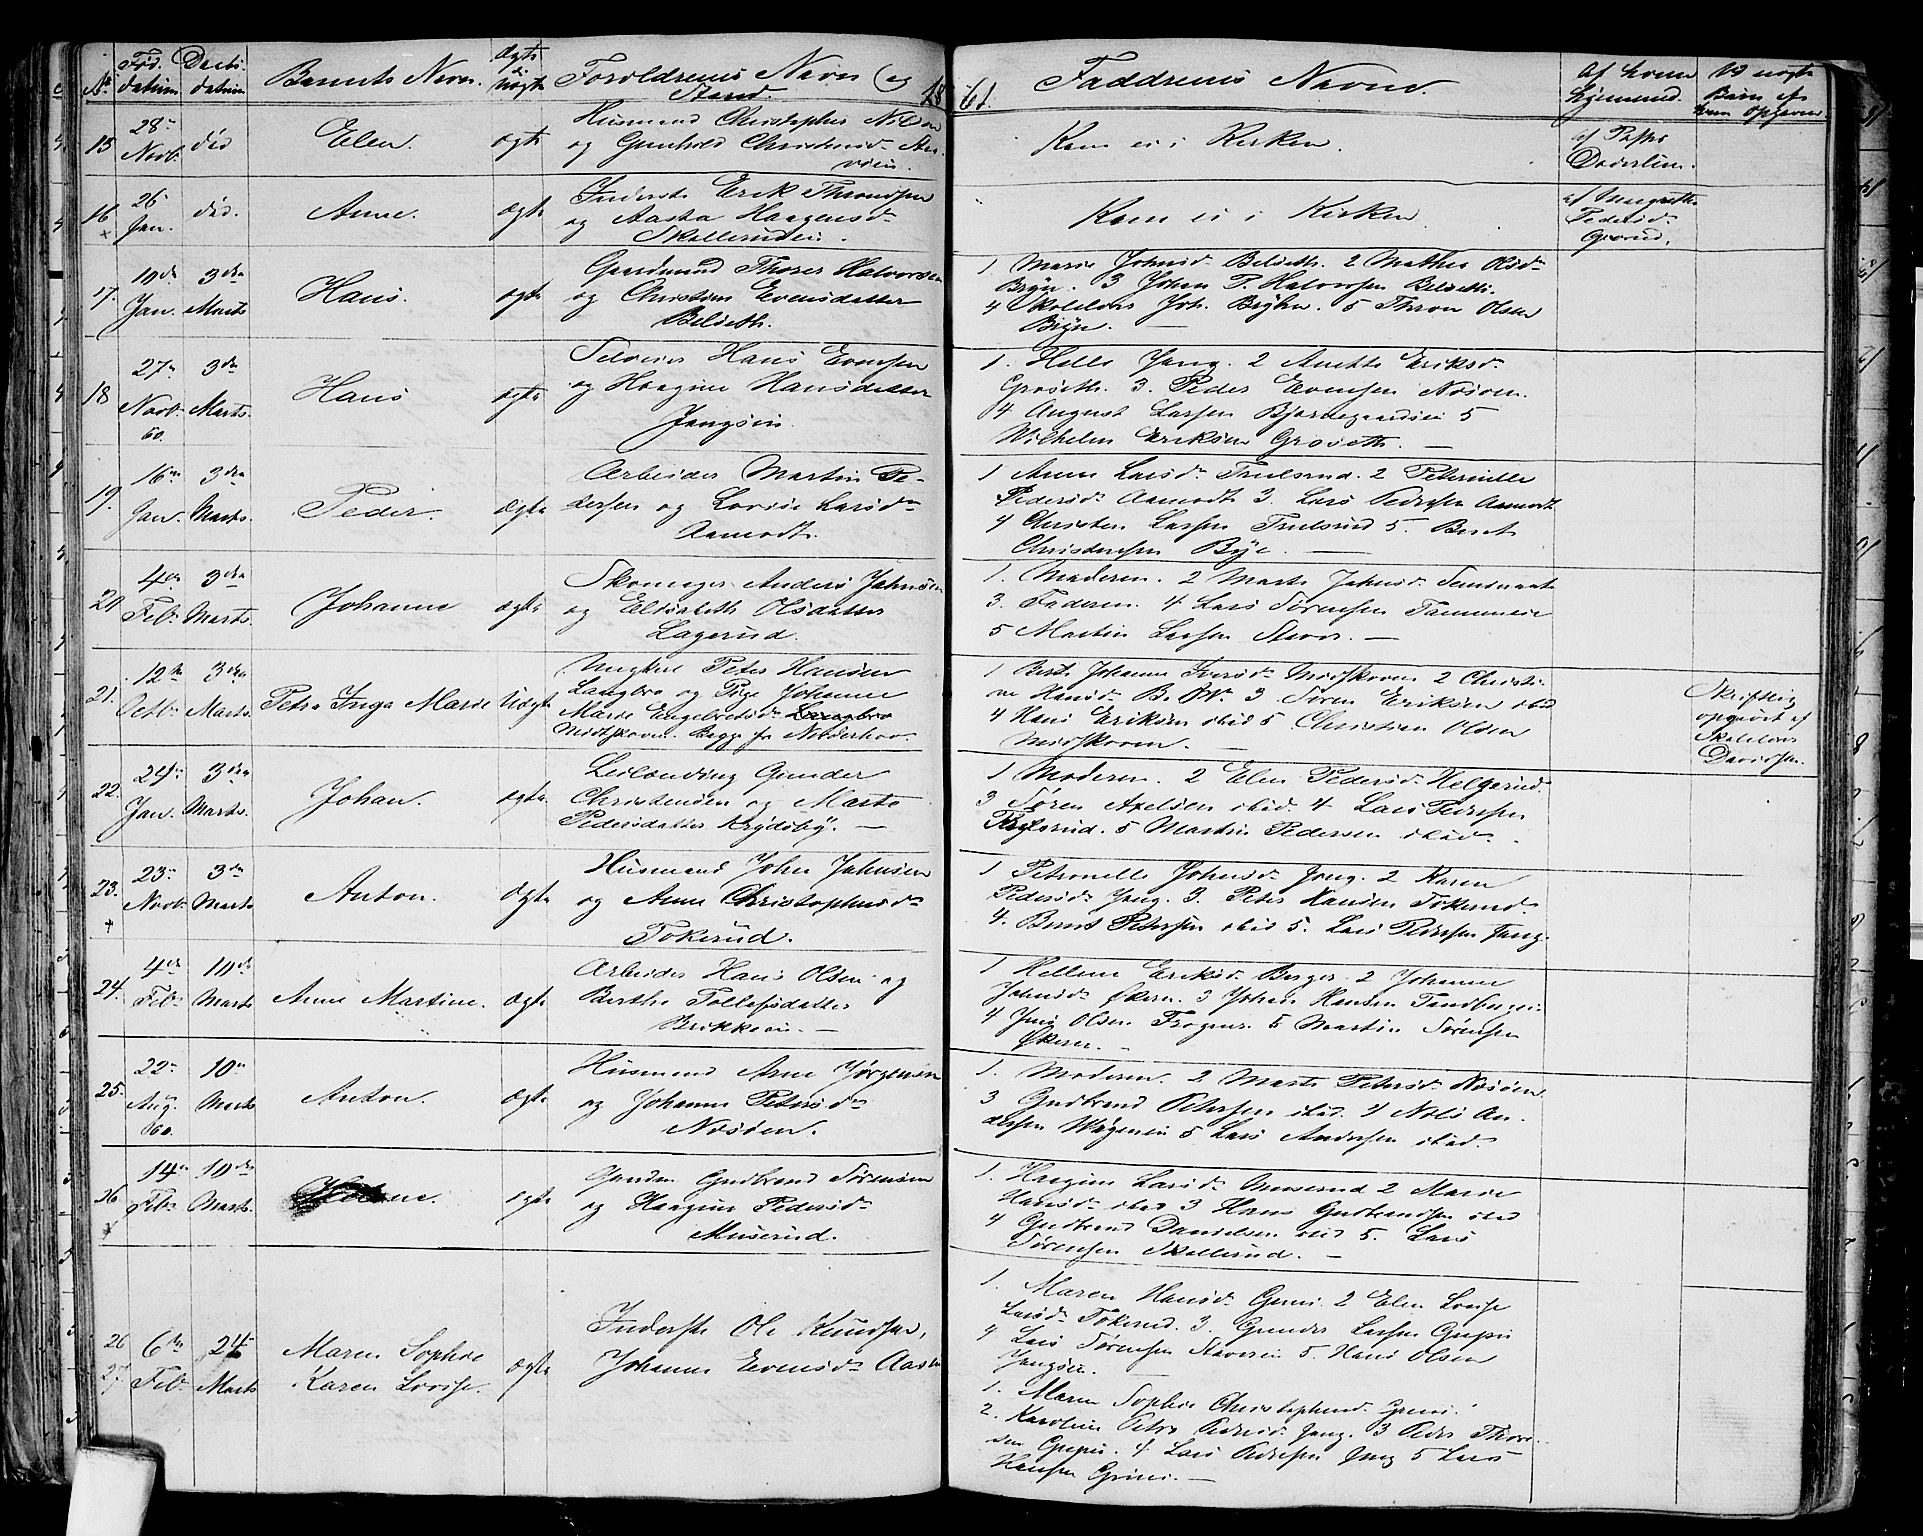 No Fød. datum Daabs. datum Barnets Navn. Ægte el. uægte Forældrenes Navn og Stand. 18
61. Faddrenes Navne. Af hvem hjemmed. Ved uægte Børn af hvem opgiven
15 28 Novb. død Elen. ægte Husmand Christopher
og Gunhild Christensd.
Kom ei i Kirken. af Præst
16 26 Jan. død. Anne. ægte Inderste Erik Throndsen
og Aasta Haagensd.
Skollerudei.
Kom ei i Kirken Pedersd. Gjerud.
17. 19de Jan. 3die Marts Hans. ægte Gaardmand Thorer Halvorsen
og Christine Evensdatter
Belseth.
1. Marie Johnsd. Belseth. 2 Mathea Olsd.
Bryn. 3 Johan P. Halvorsen Belseth.
4 Skolelær. Joh. Bryhn. 5 Thron Olsen
Bryn.
18 27 Novb. 60. 3die Marts. Hans ægte Selveier Hans Evensen
og Haagine Hansdatter
Jongsei.
1. Helle Jong. 2 Anette Eriksd.
Groseth. 3. Peder Evensen Nøsøen.
4 August Larsen Bjerkegaardsei 5
Wilhelm Eriksen Groseth.
19. 16 Jan. 3die Marts. Peder. ægte Arbeider Martin Pe-
dersen og Lovise Larsd.
Aamodt.
1 Anne Larsd. Trulsrud. 2 Peternille
Pedersd. Aamodt 3. Lars Pedersen Aamodt
4 Christen Larsen Trulsrud 5. Bernt
Christensen Bye.
20 4de Feb. 3die Marts. Johanne ægte Skomager Anders Johnsen
og Elisabeth Olsdatter
Lagerud.
1. Moderen. 2 Marte Johnsd.
3. Faderen. 4 Lars Sørensen
5 Martin Larsen
21. 12te Octb. 3die Marts. Petra Inga Marie Uægte Ungkarl Peter Hansen
Langbro og Pige Johanne
Marie Engebretsd. Langbro
Midtskoven. Begge fra Norderhov.
1 Berte Johanne Iversd. Midtskoven 2 Christi-
ne Hansd. 3. Søren Eriksen ibid
4 Hans Eriksen ibid 5 Christian Olsen
Midtskoven. Skriftlig opgivet af Skolelær. Davidsen.
22. 24 Jan. 3die Marts. Johan. ægte. Leilænding Gunder
Christensen og Marte
Pedersdatter Krydsby.
1 Moderen. 2 Elen Pedersd. Helgerud
3 Søren Axelsen ibid. 4. Lars Pedersen
5 Martin Pedersen ibid.
23. 23 Novb. 3die Marts Anton. ægte Husmand John Johnsen
og Anne Christophersd.
Tokerud.
1 Petronelle Johnsd. Jong. 2 Karen
Pedersd. Jong. 3. Peter Hansen Tokerud.
4. Bernt Petersen ibid 5. Lars Pedersen Jong.
24. 4de Feb. 10de Marts Anne Martine. ægte Arbeider Hans Olsen og
Berthe Tollefsdatter
Brikkeei.
1 Hellene Eriksd. Berger. 2 Johanne
Johnsd. Økern. 3 Johan Hansen
4 Jens Olsen Frogner. 5 Martin Sørensen
Økern.
25. 22 Aug. 60. 10 Marts Anton. ægte Husmand Arne Jørgensen
og Johanne Petersd.
Nøsøen.
1. Moderen. 2 Marte Petersd. Nøsøen
3 Gudbrand Petersen ibid. 4 Nils An-
dersen 5 Lars Andersen ibid.
26 14 Feb. 10de Marts. ægte Gaardm. Gudbrand Sørensen
og Haagine Pedersd.
Muserud.
1. Haagine Larsd. Muserud 2 Marie
Hansd. ibid 3 Hans Gudbrandsen ibid
4 Gudbrand Danielsen ibid 5. Lars
Sørensen Skollerud.
26 27. 6te Feb. 24 Marts Maren Sophie
Karen Lovise. ægte Inderste Ole Knudsen,
Johanne Evensd. Aasen
1. Maren Hansd. Grini. 2 Elen Lovise
Larsd. Tokerud. 3. Gunder Larsen
4 Lars Sørensen Staverei 5. Hans Olsen
Jongsei.
1. Maren Sophie Christophersd. Grini.
2. Karoline Petra Pedersd. Jong. 3 Peder Thore-
sen 4 Lars Pedersen Jong 5 Lars
Hansen Grini.